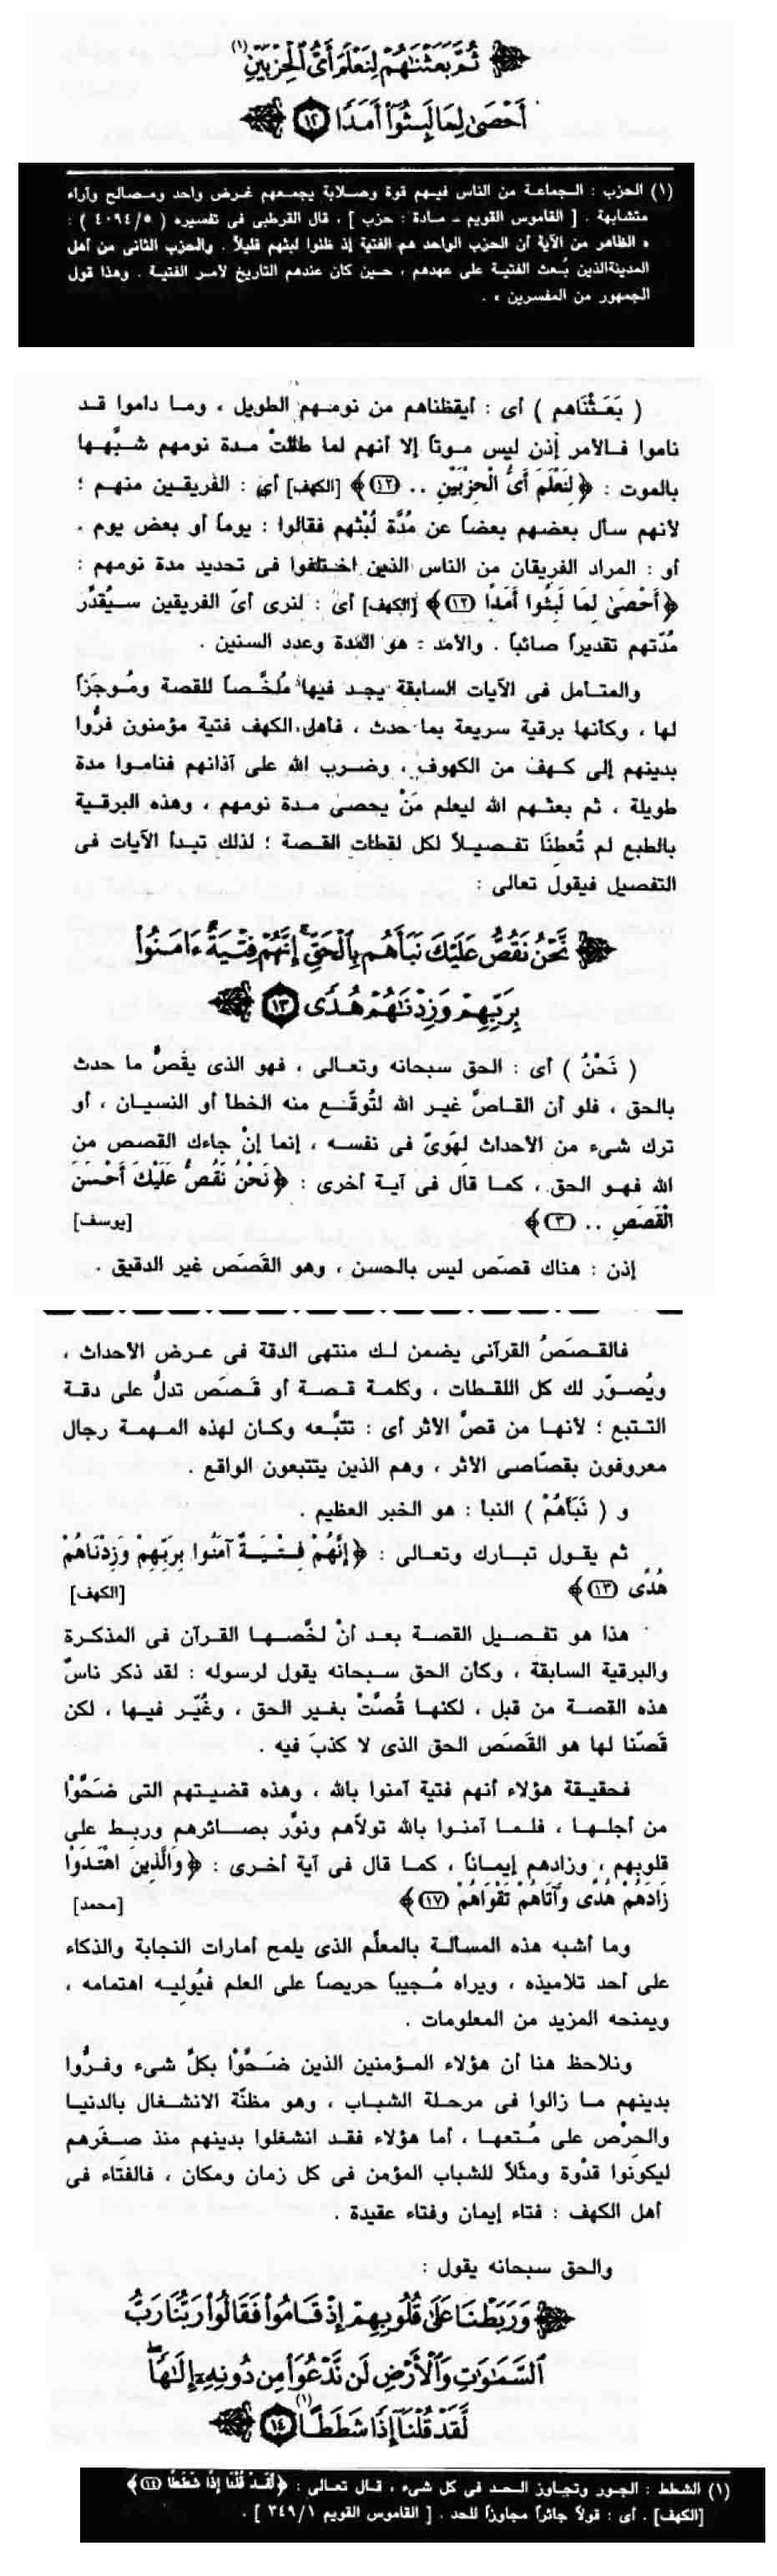 ثُمَّ بَعَثْنَٰهُمْ لِنَعْلَمَ أَىُّ ٱلْحِزْبَيْنِ (١)
أَحْصَىٰ لِمَا لَبِثُوٓا۟ أَمَدًا ١٢
(١) الحزب : الجماعة من الناس فيهم قوة وصلابة يجمعهم غرض واحد ومصالح وآراء
متشابهة . [ القاموس القويم - مادة : حزب ] ، قال القرطبى فى تفسيره ( ٤٠٩٤/٥ ) :
« الظاهر من الآية أن الحزب الواحد هم الفتية إذ ظنوا لبثهم قليلاً . والحزب الثانى من أهل
المدينة الذين بُعث الفتية على عهدهم ، حين كان عندهم التاريخ لأمر الفتية . وهذا قول
الجمهور من المفسرين » .
( بَعَثْنَاهم ) أى : أيقظناهم من نومهم الطويل ، وما داموا قد
ناموا فالأمر إذن ليس موتاً إلا أنهم لما طالتْ مدة نومهم شبَّهها
بالموت : ﴿ لِنَعْلَمَ أَىُّ الْحِزْبَيْنِ .. (١٢) ﴾ [الكهف] أى : الفريقين منهم ؛
لأنهم سأل بعضهم بعضاً عن مُدَّة لُبْثهم فقالوا : يوماً أو بعض يوم .
أو : المراد الفريقان من الناس الذين اختلفوا فى تحديد مدة نومهم :
﴿ أَحْصَىٰ لِمَا لَبِثُوا أَمَدًا (١٢) ﴾ [الكهف] أى : لنرى أىّ الفريقين سيُقدِّر
مُدّتهم تقديراً صائباً . والأمد : هو المدة وعدد السنين .
والمتأمل فى الآيات السابقة يجد فيها مُلخَّصاً للقصة ومُوجَزاً
لها ، وكأنها برقية سريعة بما حدث ، فأهل الكهف فتية مؤمنون فرُّوا
بدينهم إلى كهف من الكهوف ، وضرب الله على آذانهم فناموا مدة
طويلة ، ثم بعثهم الله ليعلم مَنْ يحصى مدة نومهم ، وهذه البرقية
بالطبع لم تُعطِنَا تفصيلاً لكل لقطات القصة ؛ لذلك تبدأ الآيات فى
التفصيل فيقول تعالى :
نَّحْنُ نَقُصُّ عَلَيْكَ نَبَأَهُم بِٱلْحَقِّ ۚ إِنَّهُمْ فِتْيَةٌ ءَامَنُوا۟
بِرَبِّهِمْ وَزِدْنَٰهُمْ هُدًى ١٣
( نَحْنُ ) أى : الحق سبحانه وتعالى ، فهو الذى يقصُّ ما حدث
بالحق ، فلو أن القاصَّ غير الله لتُوقّع منه الخطأ أو النسيان ، أو
ترك شىء من الأحداث لهَوىً فى نفسه ، إنما إنْ جاءك القصص من
الله فهو الحق ، كما قال فى آية أخرى : ﴿ نَحْنُ نَقُصُّ عَلَيْكَ أَحْسَنَ
الْقَصَصِ .. (٣) ﴾ [يوسف]
إذن : هناك قصَص ليس بالحسن ، وهو القَصَص غير الدقيق .
فالقصَصُ القرآنى يضمن لك منتهى الدقة فى عرض الأحداث ،
ويُصوِّر لك كل اللقطات ، وكلمة قصة أو قَصَص تدلُّ على دقة
التتبع ؛ لأنها من قصِّ الأثر أى : تتبَّعه وكان لهذه المهمة رجال
معروفون بقصّاصى الأثر ، وهم الذين يتتبعون الواقع .
و ( نَبَأَهُمْ ) النبأ : هو الخبر العظيم .
ثم يقول تبارك وتعالى : ﴿ إِنَّهُمْ فِتْيَةٌ آمَنُوا بِرَبِّهِمْ وَزِدْنَاهُمْ
هُدًى (١٣) ﴾ [الكهف]
هذا هو تفصيل القصة بعد أنْ لخَّصها القرآن فى المذكرة
والبرقية السابقة ، وكأن الحق سبحانه يقول لرسوله : لقد ذكر ناسٌ
هذه القصة من قبل ، لكنها قُصَّتْ بغير الحق ، وغُيِّر فيها ، لكن
قَصّنا لها هو القَصَص الحق الذى لا كذبَ فيه .
فحقيقة هؤلاء أنهم فتية آمنوا بالله ، وهذه قضيتهم التى ضَحَّوْا
من أجلها ، فلما آمنوا بالله تولاَّهم ونوَّر بصائرهم وربط على
قلوبهم ، وزادهم إيماناً ، كما قال فى آية أخرى : ﴿ وَالَّذِينَ اهْتَدَوْا
زَادَهُمْ هُدًى وَآتَاهُمْ تَقْوَاهُمْ (١٧) ﴾ [محمد]
وما أشبه هذه المسألة بالمعلِّم الذى يلمح أمارات النجابة والذكاء
على أحد تلاميذه ، ويراه مُجيباً حريصاً على العلم فيُوليه اهتمامه ،
ويمنحه المزيد من المعلومات .
ونلاحظ هنا أن هؤلاء المؤمنين الذين ضَحَّوْا بكلِّ شىء وفرُّوا
بدينهم ما زالوا فى مرحلة الشباب ، وهو مظنّة الانشغال بالدنيا
والحِرْص على مُتعها ، أما هؤلاء فقد انشغلوا بدينهم منذ صغَرهم
ليكونوا قدْوة ومثَلاً للشباب المؤمن فى كل زمان ومكان ، فالفتاء فى
أهل الكهف : فتاء إيمان وفتاء عقيدة .
والحق سبحانه يقول :
وَرَبَطْنَا عَلَىٰ قُلُوبِهِمْ إِذْ قَامُوا۟ فَقَالُوا۟ رَبُّنَا رَبُّ
ٱلسَّمَٰوَٰتِ وَٱلْأَرْضِ لَن نَّدْعُوَا۟ مِن دُونِهِۦٓ إِلَٰهًا ۖ
لَّقَدْ قُلْنَآ إِذًا شَطَطًا (١) ١٤
(١) الشطط : الجور وتجاوز الحد فى كل شىء ، قال تعالى : ﴿ لَّقَدْ قُلْنَا إِذًا شَطَطًا (١٤) ﴾
[الكهف] . أى : قولاً جائراً مجاوزاً للحد . [ القاموس القويم ٣٤٩/١ ] .